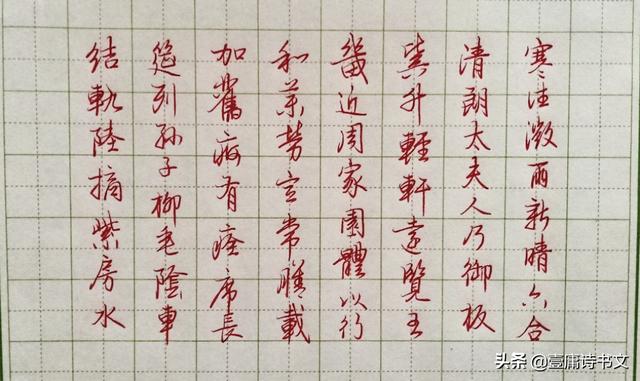 寒往微雨新晴六合
清朗太夫人乃御板
輿升輕軒遠覽王
畿近周家園體以行
和藥勞宣常膳載
加舊痾有痊席長
筵列孙子柳垂蔭車
結軌陸摘紫房水
头条 @壹庸诗书文